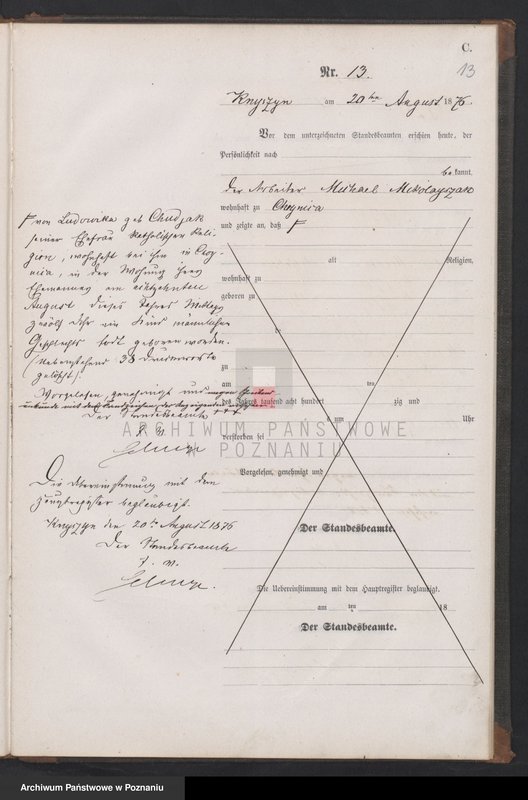 C.
Nr. 13.
13
Knyszyn am 20ten August 1876.
Vor dem unterzeichneten Standesbeamten erschien heute, der
Persönlichkeit nach
bekannt,
der Arbeiter Michael Mikolayczak
wohnhaft zu Choynica
und zeigte an, daß
von Ludowika geb Chudjak
seiner Ehefrau katholischer Reli-
gion, wohnhaft bei ihm in Choy-
nica, in der Wohnung ihres
Ehemannes am achtzehnten
August dieses Jahres Mittags
zwölf Uhr ein Kind männlichen
Geschlechts todt geboren worden.
38 Druckworte
gelöscht
Vorgelesen, genehmigt und wegen
Der Standesbeamte +++
alt Religion,
wohnhaft zu
geboren zu
zu
am ten
des Jahres tausend acht hundert zig und
um Uhr
verstorben sei
Vorgelesen, genehmigt und
Die Übereinstimmung mit dem
Hauptregister beglaubigt.
Knyszyn den 20ten August 1876
Der Standesbeamte
Der Standesbeamte.
Die Uebereinstimmung mit dem Hauptregister beglaubigt.
am ten 18
Der Standesbeamte.
ARCHIWUM PAŃSTWOWE
W POZNANIU
Archiwum Państwowe w Poznaniu